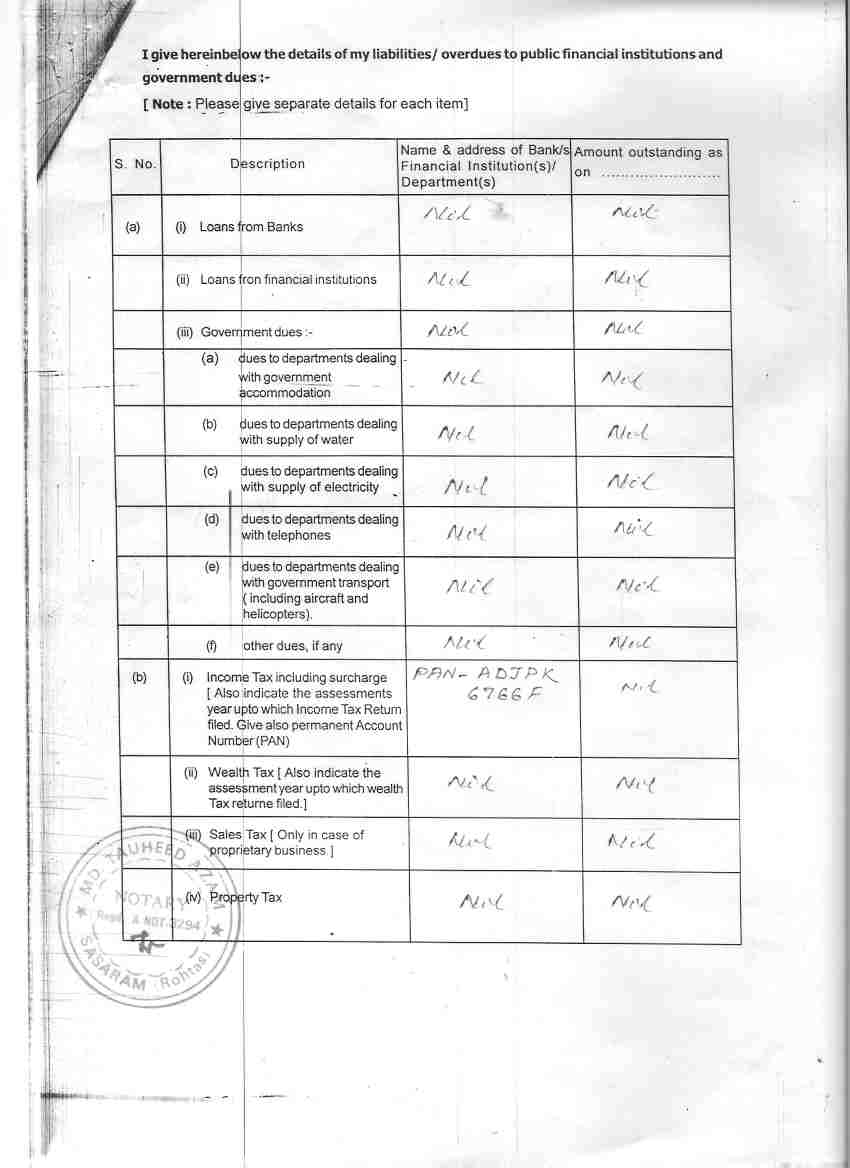 I give hereinbelow the details of my liabilities/ overdues to public financial institutions and
government dues :-
[ Note : Please give separate details for each item]
S. No.
Description
Name & address of Bank/s
Financial Institution(s)/
Department(s)
Amount outstanding as
on ..........................
(a)
(i) Loans from Banks
Nil
Nil
(ii) Loans fron financial institutions
Nil
Nil
(iii) Government dues :-
Nil
Nil
(a) dues to departments dealing
with government
accommodation
Nil
Nil
(b) dues to departments dealing
with supply of water
Nil
Nil
(c) dues to departments dealing
with supply of electricity
Nil
Nil
(d) dues to departments dealing
with telephones
Nil
Nil
(e) dues to departments dealing
with government transport
( including aircraft and
helicopters).
Nil
Nil
(f) other dues, if any
Nil
Nil
(b)
(i) Income Tax including surcharge
[ Also indicate the assessments
year upto which Income Tax Return
filed. Give also permanent Account
Number (PAN)
PAN- ADJPK
6766F
Nil
(ii) Wealth Tax [ Also indicate the
assessment year upto which wealth
Tax returne filed.]
Nil
Nil
(iii) Sales Tax [ Only in case of
proprietary business ]
Nil
Nil
(iv) Property Tax
Nil
Nil
MD. TAUHEED AZAM
NOTARY
Regd. A NOT-3294
SASARAM (Rohtas)